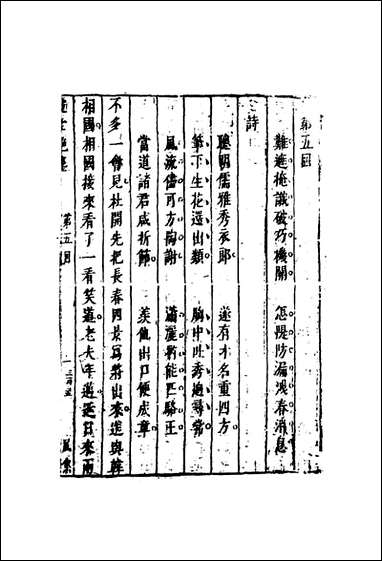 第五回
難遮掩識破巧機關　怎提防漏洩春消息
詩
聰明儒雅秀衣郎　遂有才名重四方
筆下生花還出類　胸中吐秀邁尋常
風流儘可方陶謝　瀟灑猶能匹駱王
當道諸君咸折節　羨他出口便成章
不多一會見杜開先把長春四景寫將出來進與韓
相國相國接來看了一看笑道老夫年邁延日來兩
第五回